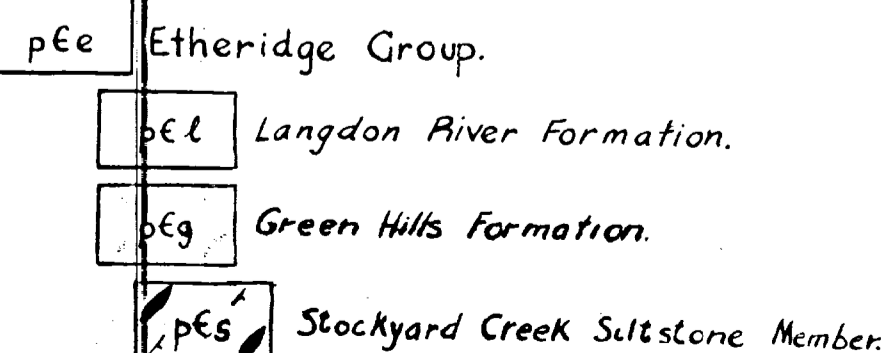 p€e Etheridge Group.
p€l Langdon River Formation.
p€g Green Hills Formation.
p€s Stockyard Creek Siltstone Member.